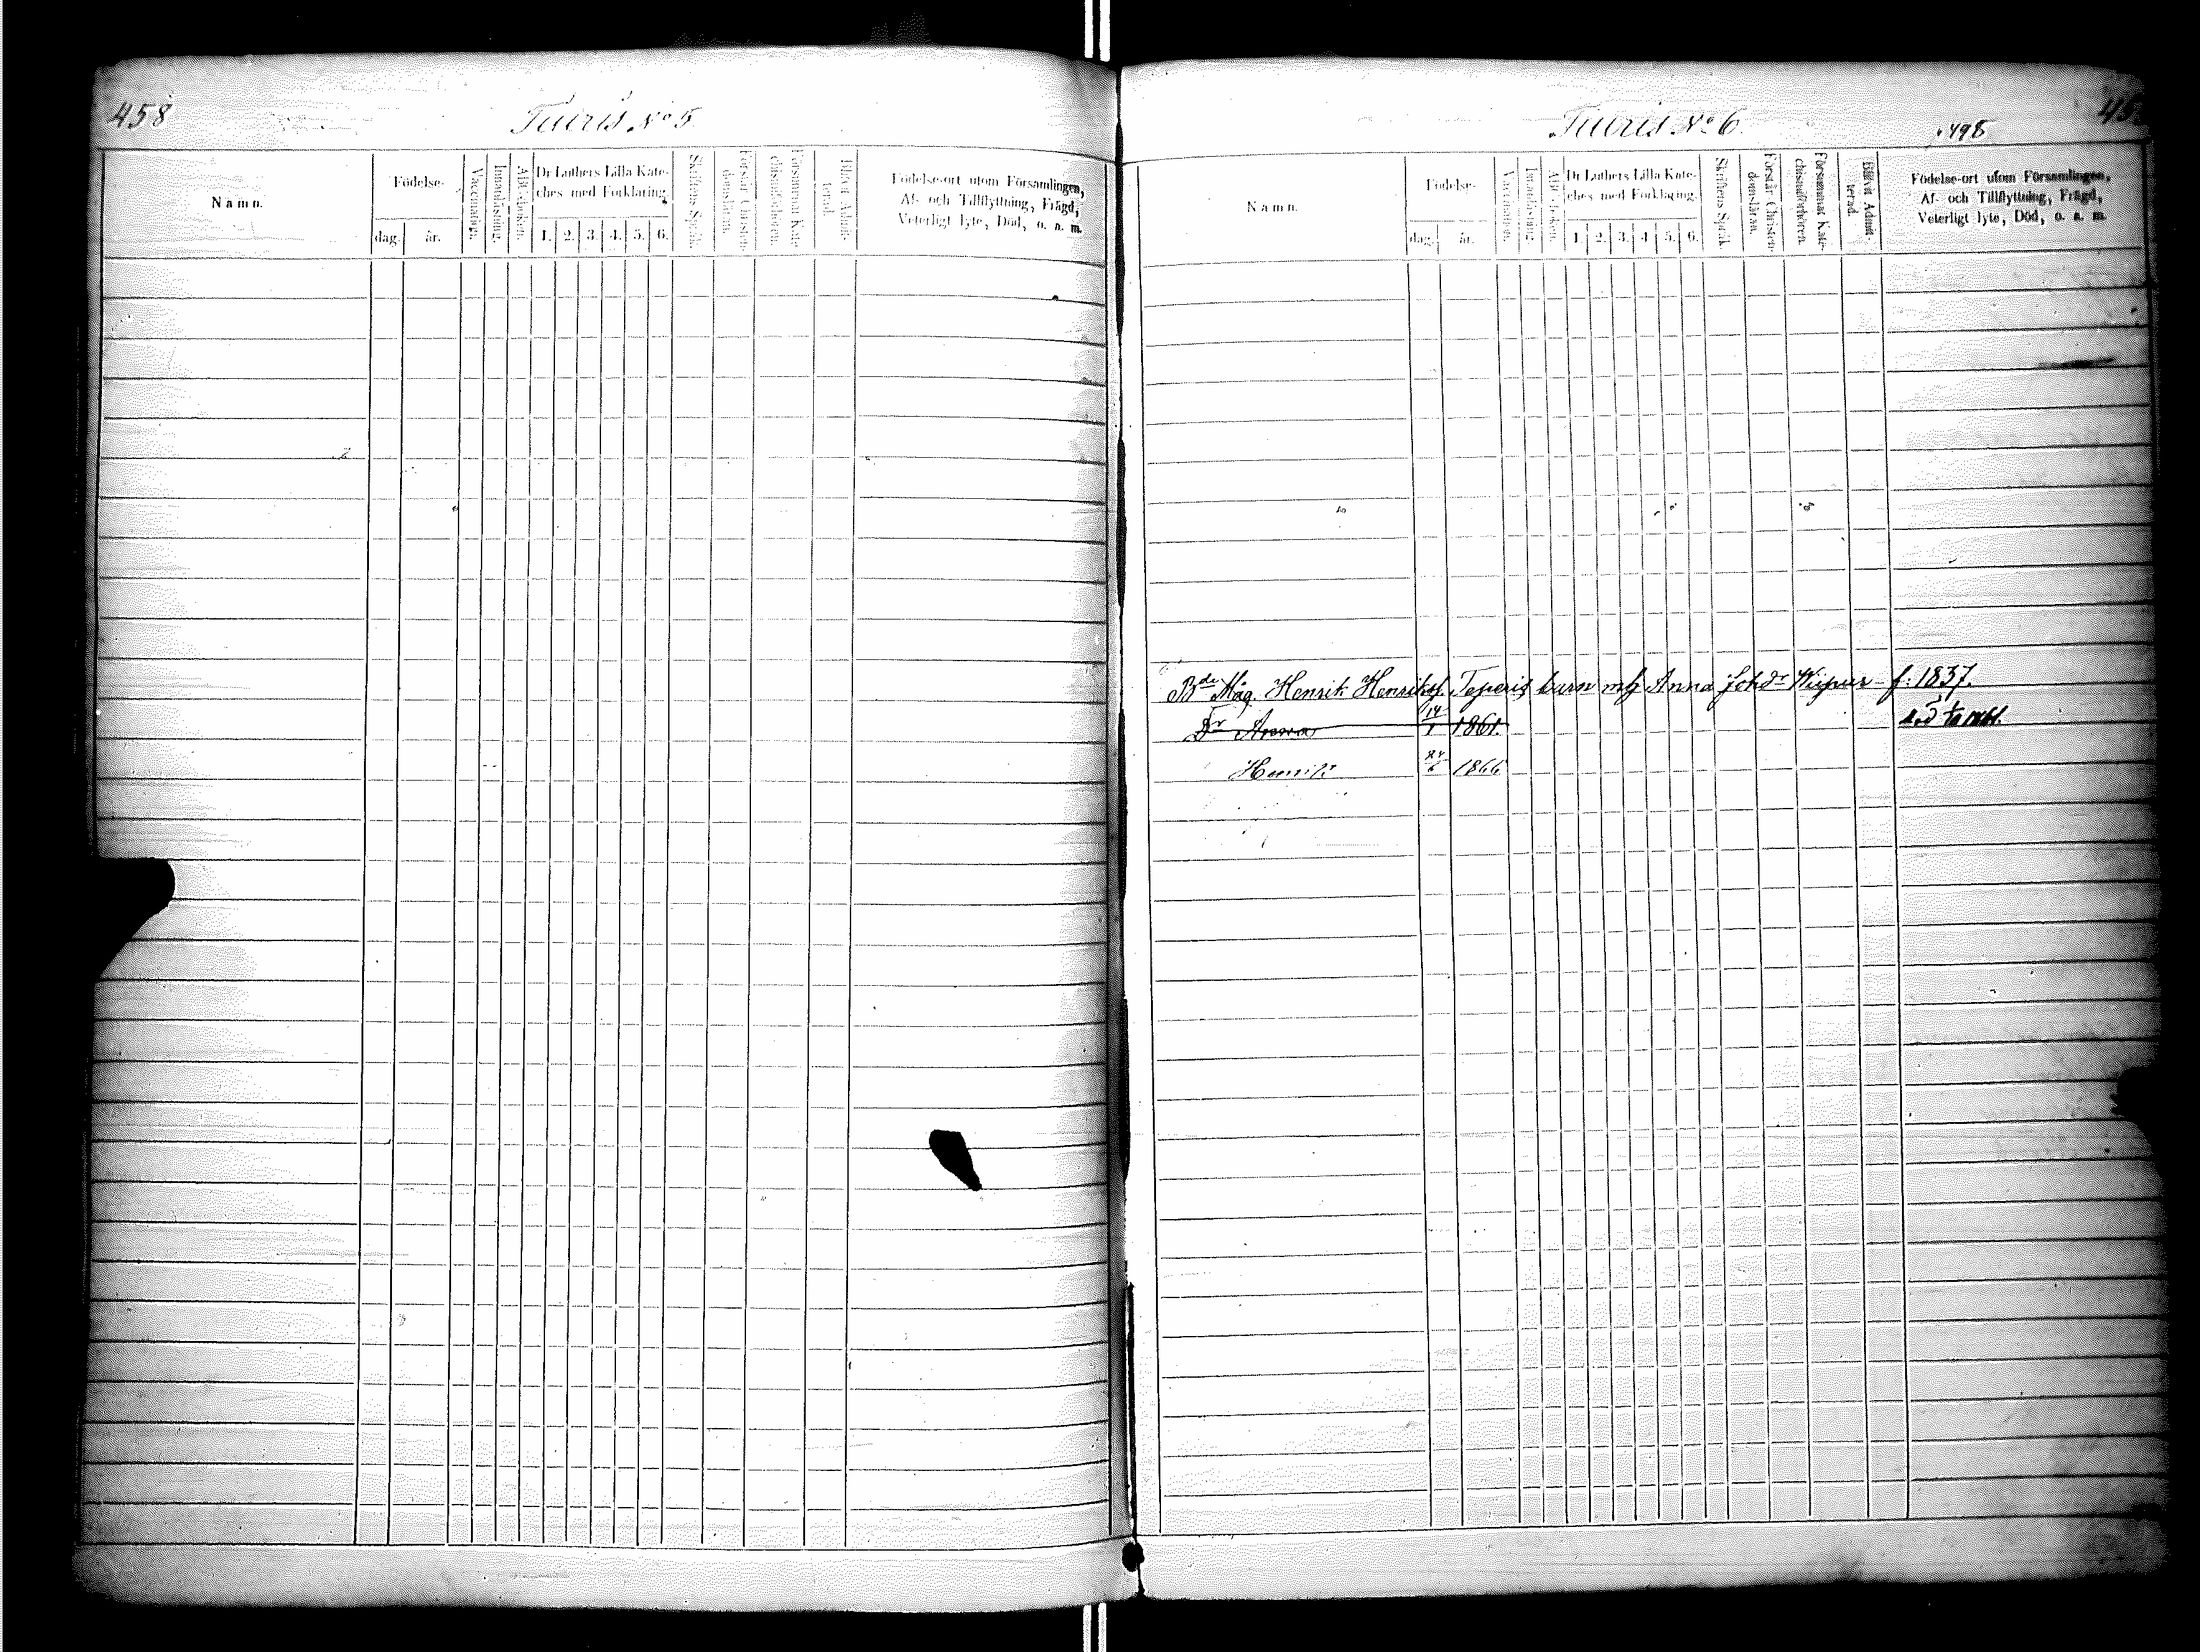 458
Tueris No 5.
Namn.
Födelse-
dag. år.
Vaccination.
Innanläsning.
ABC-boken.
Dr Luthers Lilla Kate-
ches med Förklaring.
1. 2. 3. 4. 5. 6.
Skriftens Språk.
Förstår Christen-
domsläran.
Försummat Kate-
chismiförhören.
Blifvit Admit-
terad.
Födelse-ort utom Församlingen,
Af- och Tillflyttning, Frägd,
Veterligt lyte, Död, o. a. m.
Tueris No 6.
45
498
Namn.
Födelse-
dag. år.
Vaccination.
Innanläsning.
ABC-boken.
Dr Luthers Lilla Kate-
ches med Förklaring.
1. 2. 3. 4. 5. 6.
Skriftens Språk.
Förstår Christen-
domsläran.
Försummat Kate-
chismiförhören.
Blifvit Admit-
terad.
Födelse-ort utom Församlingen,
Af- och Tillflyttning, Frägd,
Veterligt lyte, Död, o. a. m.
Bde Måg. Henrik Henriks. Teperis barn m Anna Johdr f. 1837.
Dr Anna 14/1 1861.
Henrik 1866